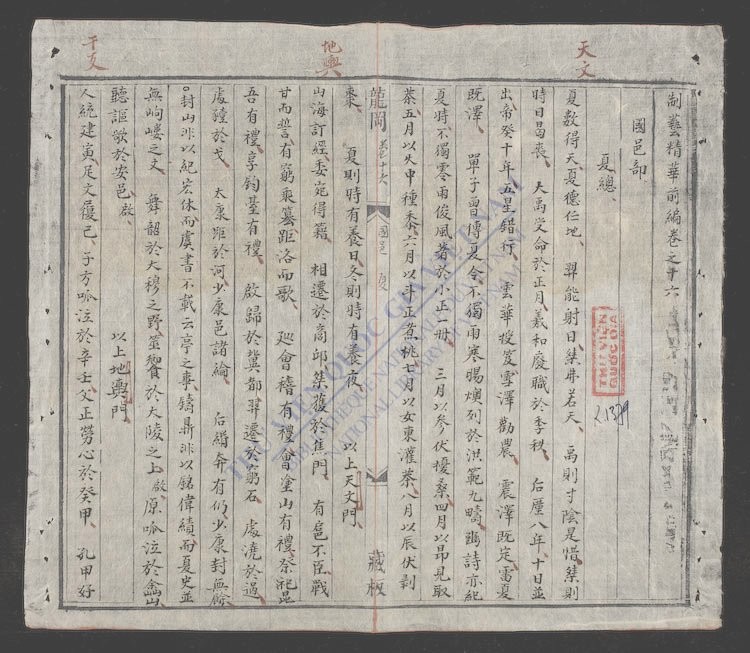 天文
地輿
干支
制藝精華前編卷之十六
國邑部
夏總
夏数得天夏德仁地 羿能射日桀井若天 禹則寸陰是惜桀則
時日曷喪 大禹受命於正月羲和廢職於季秋 后厘八年十日並
出帝癸十年五星錯行 雲華授笈雪澤勸農 震澤既定雷夏
既澤 單子曽傳夏令不獨雨寒暘燠列於洪範九疇豳詩亦紀
夏時不獨零雨俊風著於小正一冊 三月以参伏擾桑四月以昴見取
荼五月以火中種黍六月以斗正煮桃七月以女東灌荼八月以辰伏剥
龍岡 卷十六 國邑 夏 藏板
棗 夏則時有養日冬則時有養夜 以上天文門
山海訂經委宛得籍 相遷於商邱桀獲於焦門 有扈不臣戰
甘而誓有窮乘篡距洛而歌 廵會稽有禮會塗山有禮祭崐昆
吾有禮享鈞臺有禮 啟歸於冀都羿遷於窮石 處澆於過
處豷於戈 太康距於河少康邑諸綸 后緡奔有仍少康封無餘
封山非以紀宏休而虞書不載云亭之典鑄鼎非以銘偉績而夏史並
無岣嶁之文 舞韶於大穆之野筮響於大陵之上啟 原呱泣於㑹山
聽謳歌於安邑啟 以上地輿門
人統建寅足文履己 子方呱泣於辛壬父正勞心於癸甲 孔甲好
THƯ VIỆN QUỐC GIA VIỆT NAM
BIBLIOTHEQUE NATIONALE DU VIETNAM
NATIONAL LIBRARY OF VIETNAM
THƯ VIỆN
QUỐC GIA